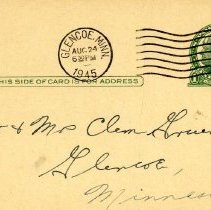 GLENCOE, MINN.
AUG 24
6 30 PM
1945
THIS SIDE OF CARD IS FOR ADDRESS
& Mrs Clem
Glencoe,
Minnes